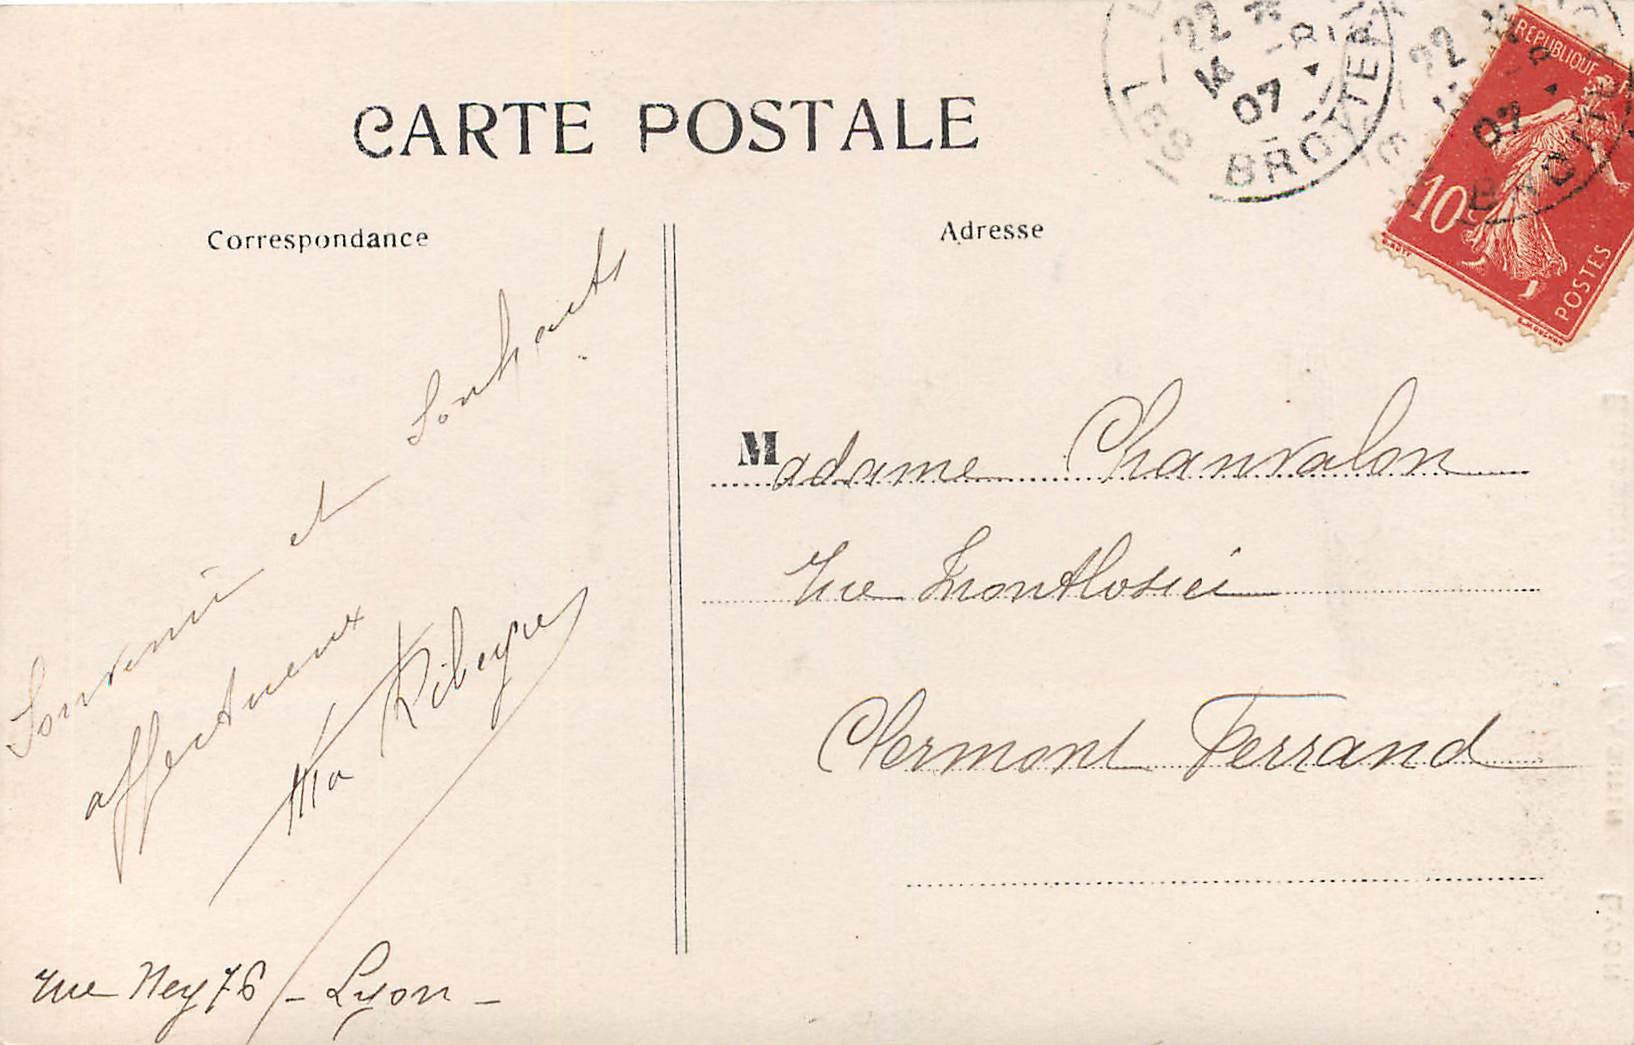 CARTE POSTALE
Correspondance
Adresse
Souvenir et Souhaits
affectueux
Ribeyre
rue Ney 76 - Lyon -
LES BROTTEAUX
22
07
22
07
REPUBLIQUE
10
POSTES
Madame Chanvalon
rue Montlosier
Clermont Ferrand
LYON